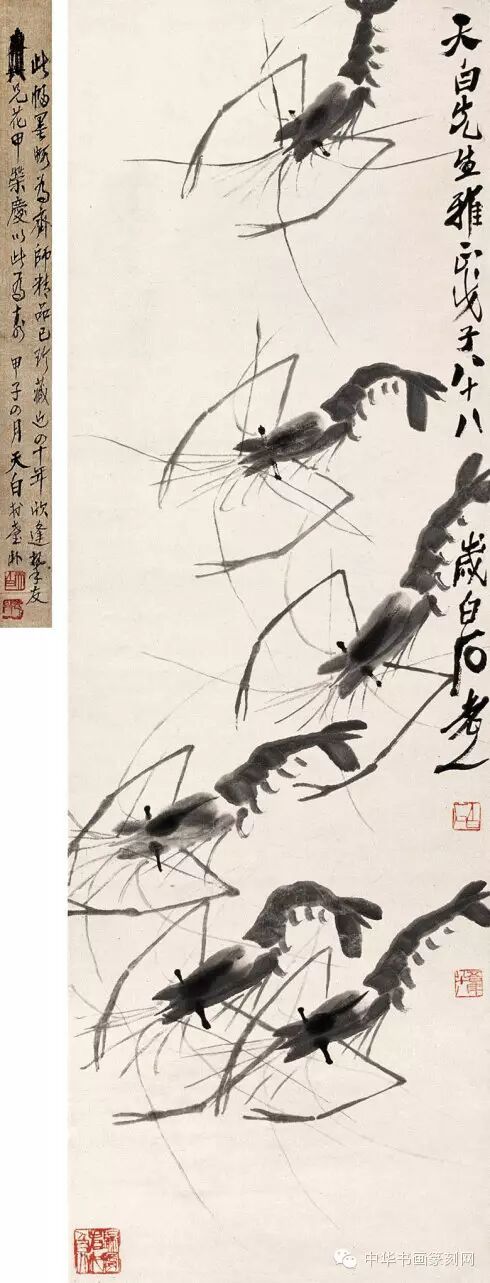 天白先生雅正戊子八十八歲白石老人
此幅墨蝦為齊師精品已珍藏近四十年欣逢摯友
兄花甲榮慶以此為壽 甲子四月 天白於臺北
中华书画篆刻网